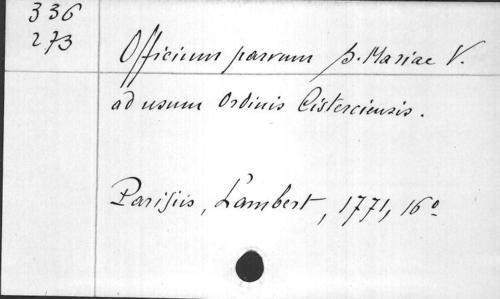 336
273
Officium parvum b. Mariae V.
ad usum Ordinis Cisterciensis.
Parisiis, Lambert, 1771, 16º